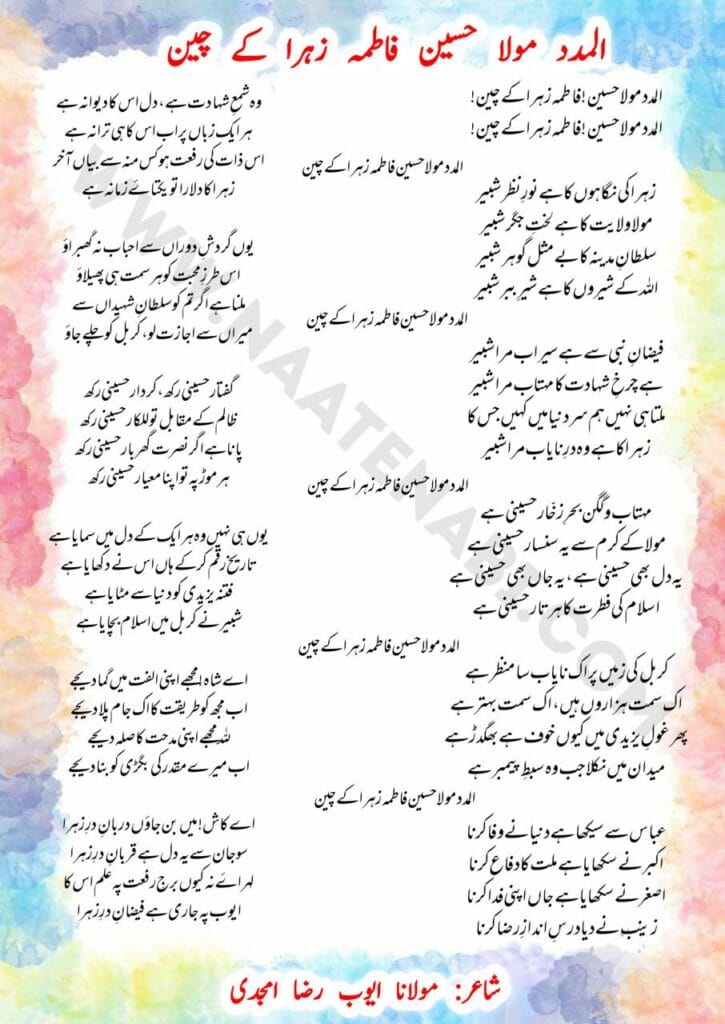 المدد مولا حسین فاطمہ زہرا کے چین
المدد مولا حسین! فاطمہ زہرا کے چین!
المدد مولا حسین! فاطمہ زہرا کے چین!
المدد مولا حسین فاطمہ زہرا کے چین
زہرا کی نگاہوں کا ہے نورِ نظر شبیر
مولا ولایت کا ہے لختِ جگر شبیر
سلطانِ مدینہ کا بے مثل گوہر شبیر
اللہ کے شیروں کا ہے شیرِ ببر شبیر
المدد مولا حسین فاطمہ زہرا کے چین
فیضانِ نبی سے ہے سیراب مرا شبیر
ہے چرخِ شہادت کا مہتاب مرا شبیر
ملتا ہی نہیں ہم سر دنیا میں کہیں جس کا
زہرا کا ہے وہ درِ نایاب مرا شبیر
المدد مولا حسین فاطمہ زہرا کے چین
مہتاب و گگن بحرِ زخّار حسینی ہے
مولا کے کرم سے یہ سنسار حسینی ہے
یہ دل بھی حسینی ہے، یہ جاں بھی حسینی ہے
اسلام کی فطرت کا ہر تار حسینی ہے
المدد مولا حسین فاطمہ زہرا کے چین
کربل کی زمیں پر اک نایاب سا منظر ہے
اک سمت ہزاروں ہیں، اک سمت بہتر ہے
پھر غولِ یزیدی میں کیوں خوف ہے بھگدڑ ہے
میدان میں نکلا جب وہ سبطِ پیمبر ہے
المدد مولا حسین فاطمہ زہرا کے چین
عباس سے سیکھا ہے دنیا نے وفا کرنا
اکبر نے سکھایا ہے ملت کا دفاع کرنا
اصغر نے سکھایا ہے جاں اپنی فدا کرنا
زینب نے دیا درسِ اندازِ رضا کرنا
وہ شمعِ شہادت ہے، دل اس کا دیوانہ ہے
ہر ایک زباں پر اب اس کا ہی ترانہ ہے
اس ذات کی رفعت ہو کس منہ سے بیاں آخر
زہرا کا دلارا تو یکتائے زمانہ ہے
یوں گردشِ دوراں سے احباب نہ گھبراؤ
اس طرزِ محبت کو ہر سمت ہی پھیلاؤ
ملنا ہے اگر تم کو سلطانِ شہیداں سے
میراں سے اجازت لو، کربل کو چلے جاؤ
گفتار حسینی رکھ، کردار حسینی رکھ
ظالم کے مقابل تو للکار حسینی رکھ
پانا ہے اگر نصرت گھر بار حسینی رکھ
ہر موڑ پہ تو اپنا معیار حسینی رکھ
یوں ہی نہیں وہ ہر ایک کے دل میں سمایا ہے
تاریخ رقم کر کے ہاں اس نے دکھایا ہے
فتنۂ یزیدی کو دنیا سے مٹایا ہے
شبیر نے کربل میں اسلام بچایا ہے
اے شاہ! مجھے اپنی الفت میں گما دیجے
اب مجھ کو طریقت کا اک جام پلا دیجے
للہ مجھے اپنی مدحت کا صلہ دیجے
اب میرے مقدر کی بگڑی کو بنا دیجے
اے کاش! میں بن جاؤں دربانِ درِ زہرا
سو جان سے یہ دل ہے قربانِ درِ زہرا
لہرائے نہ کیوں برجِ رفعت پہ علم اس کا
ایوب پہ جاری ہے فیضانِ درِ زہرا
شاعر: مولانا ایوب رضا امجدی
WWW.NAATENABI.COM